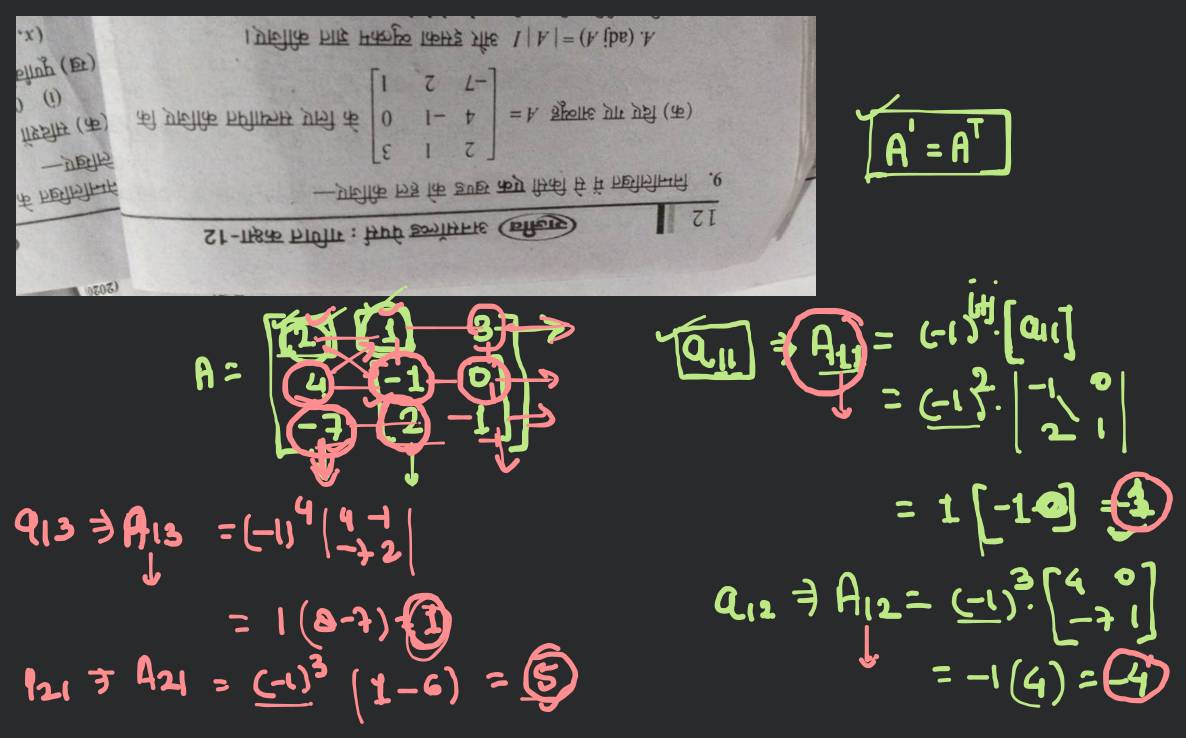 12 राजीव अनसॉल्व्ड पेपर्स : गणित कक्षा-12
9. निम्नलिखित में से किसी एक खण्ड को हल कीजिए—
(क) दिए गए आव्यूह A = [2 1 3
4 -1 0
-7 2 1] के लिए सत्यापित कीजिए कि
A. (adj A) = |A| I और इसका व्युत्क्रम ज्ञात कीजिए।
निम्नलिखित के
लिखिए—
(क) सदिशों
(i)
(ख)
(x.
(2020)
A' = A^T
A = [2 1 3
4 -1 0
-7 2 -1]
a11 ⇒ A11 = (-1)^i+j. [a11]
= (-1)^2. |-1 0
2 1|
= 1 [-1-0] = -1
a12 ⇒ A12 = (-1)^3. [4 0
-7 1]
= -1(4) = -4
a13 ⇒ A13 = (-1)^4 |4 -1
-7 2|
= 1(8-7) = 1
A21 = (-1)^3 (1-6) = 5